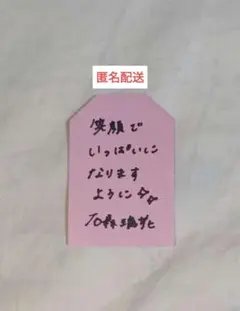 匿名配送
笑顔で
いっぱいに
なります
ように☆☆